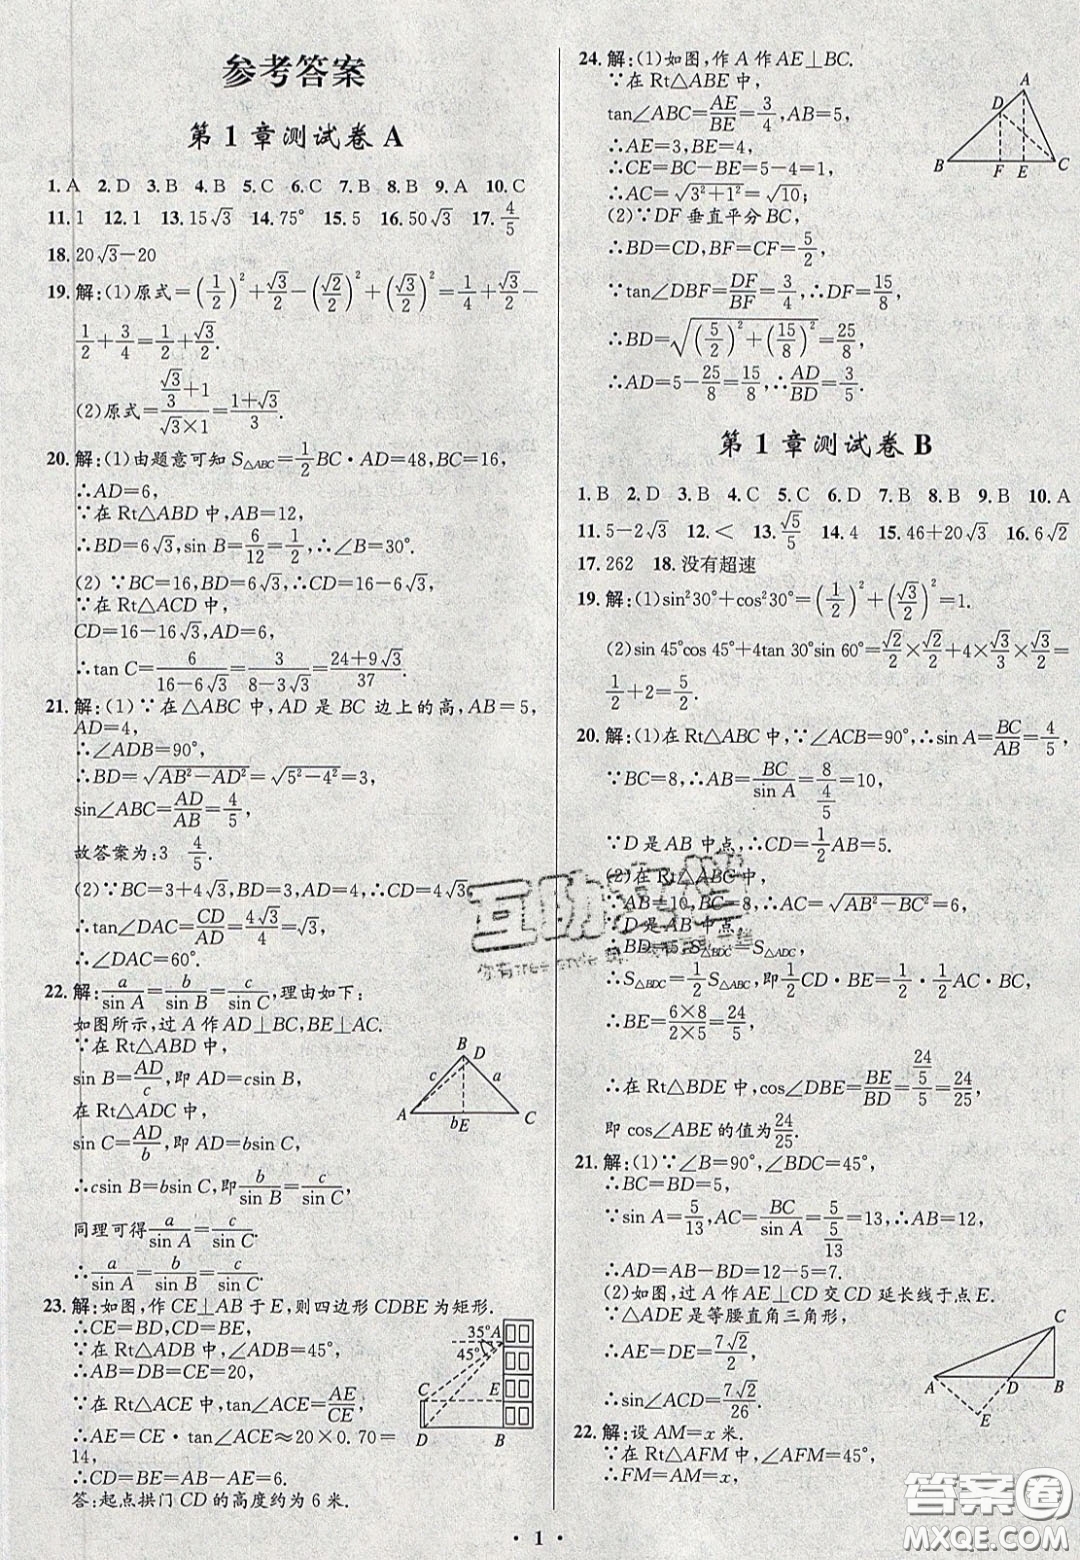 参考答案
第1章测试卷A
1.A 2.D 3.B 4.B 5.C 6.C 7.B 8.B 9.A 10.C
11.1 12.1 13.15√3 14.75° 15.5 16.50√3 17.4/5
18.20√3-20
19.解:(1)原式=(1/2)²+√3/2-(√2/2)²+(√3/2)²=1/4+√3/2-
1/2+3/4=1/2+√3/2.
(2)原式=(√3/3+1)/(√3×1)=(1+√3)/3.
20.解:(1)由题意可知S△ABC=1/2BC·AD=48,BC=16,
∴AD=6,
∵在Rt△ABD中,AB=12,
∴BD=6√3,sin B=6/12=1/2,∴∠B=30°.
(2)∵BC=16,BD=6√3,
∵在Rt△ACD中,
CD=16-16√3,AD=6,
∴tan C=6/(16-6√3)=3/(8-3√3)=(24+9√3)/37.
21.解:(1)∵在△ABC中,AD是BC边上的高,AB=5,
AD=4,
∴∠ADB=90°,
∴BD=√(AB²-AD²)=√(5²-4²)=3,
sin∠ABC=AD/AB=4/5,
故答案为:3 4/5.
(2)∵BC=3+4√3,BD=3,∴CD=4√3,
∴tan∠DAC=CD/AD=4√3/4=√3,
∴∠DAC=60°.
22.解:a/sin A=b/sin B=c/sin C,理由如下:
如图所示,过A作AD⊥BC,BE⊥AC.
∵在Rt△ABD中,
sin B=AD/c,即AD=csin B,
在Rt△ADC中,
sin C=AD/b,即AD=bsin C,
∴csin B=bsin C,即b/sin B=c/sin C,
同理可得a/sin A=c/sin C,
∴a/sin A=b/sin B=c/sin C.
B D c a A bE C
23.解:如图,作CE⊥AB于E,则四边形CDBE为矩形.
∴CE=BD,CD=BE,
∵在Rt△ADB中,∠ADB=45°,
∴AB=DB=CE=20,
∵在Rt△ACE中,tan∠ACE=AE/CE,
∴AE=CE·tan∠ACE≈20×0.70=
14,
∴CD=BE=AB-AE=6.
答:起点拱门CD的高度约为6米.
35°A 45° C E D B
24.解:(1)如图,作A作AE⊥BC.
∵在Rt△ABE中,
tan∠ABC=AE/BE=3/4,AB=5,
∴AE=3,BE=4,
∴CE=BC-BE=5-4=1,
∴AC=√(3²+1²)=√10;
(2)∵DF垂直平分BC,
∴BD=CD,BF=CF=5/2,
∵tan∠DBF=DF/BF=3/4,∴DF=15/8,
∴BD=√((5/2)²+(15/8)²)=25/8,
∴AD=5-25/8=15/8,∴AD/BD=3/5.
A D B F E C
第1章测试卷B
1.B 2.D 3.B 4.C 5.C 6.D 7.B 8.B 9.B 10.A
11.5-2√3 12.< 13.√5/5 14.4 15.46+20√3 16.6√2
17.262 18.没有超速
19.解:(1)sin²30°+cos²30°=(1/2)²+(√3/2)²=1.
(2)sin 45°cos 45°+4tan 30°sin 60°=√2/2×√2/2+4×√3/3×√3/2=
1/2+2=5/2.
20.解:(1)在Rt△ABC中,∵∠ACB=90°,∴sin A=BC/AB=4/5,
∵BC=8,∴AB=BC/sin A=8/(4/5)=10,
∵D是AB中点,∴CD=1/2AB=5.
(2)在Rt△ABC中,
∵AB=10,BC=8,∴AC=√(AB²-BC²)=6,
∵D是AB中点,
∴BD=5,S△BDC=S△ADC,
∴S△BDC=1/2S△ABC,即1/2CD·BE=1/2·1/2AC·BC,
∴BE=(6×8)/(2×5)=24/5,
∴在Rt△BDE中,cos∠DBE=BE/BD=(24/5)/5=24/25,
即cos∠ABE的值为24/25.
21.解:(1)∵∠B=90°,∠BDC=45°,
∴BC=BD=5,
∵sin A=5/13,AC=BC/sin A=5/(5/13)=13,∴AB=12,
∴AD=AB-BD=12-5=7.
(2)如图,过A作AE⊥CD交CD延长线于点E.
∵△ADE是等腰直角三角形,
∴AE=DE=7√2/2,
∴sin∠ACD=7√2/26.
C A D B E
22.解:设AM=x米.
∵在Rt△AFM中,∠AFM=45°,
∴FM=AM=x,
· 1 ·
答案圈
MXQE.COM